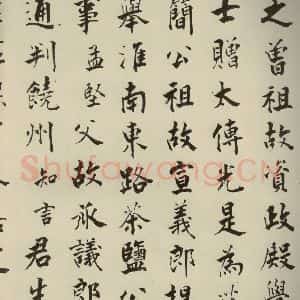 之曾祖故資政殿學
士贈太傅光是為
簡公祖故宣義郎
舉淮南東路茶鹽公
事孟堅父故承議郎
通判饒州知言君生
Shufawang.CN